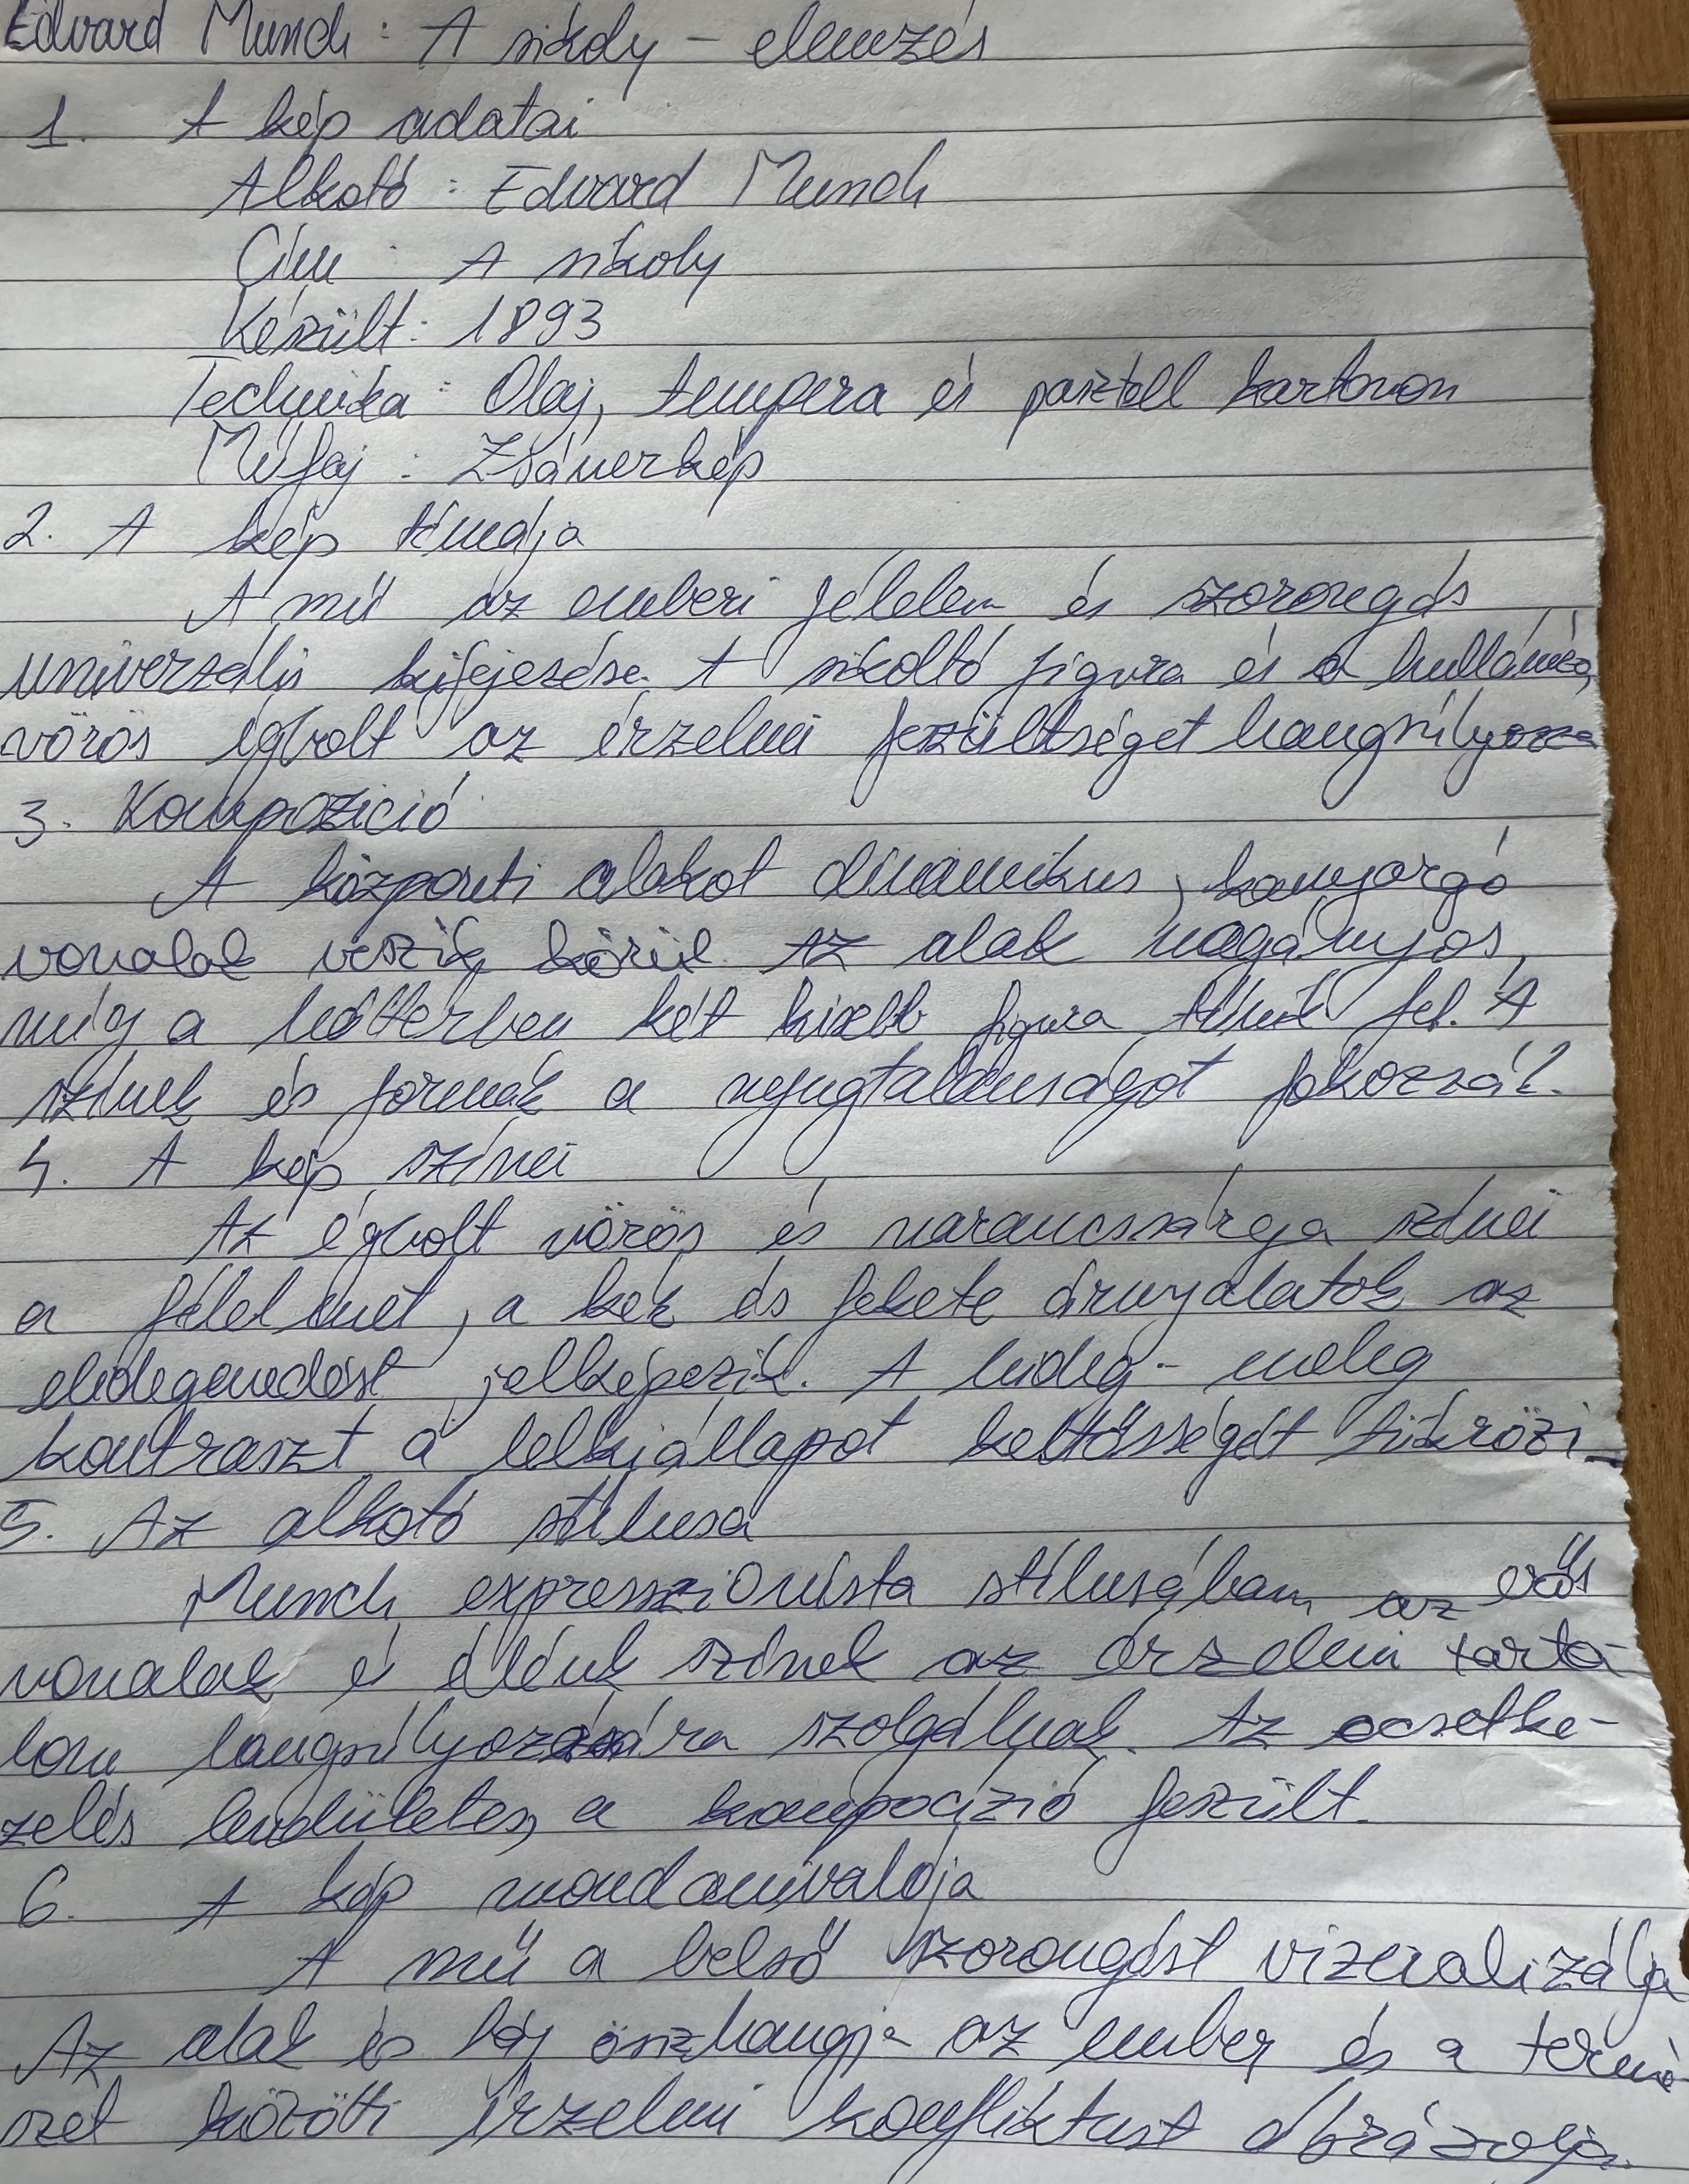 Edvard Munch : A sikoly – elemzés
1. A kép adatai
Alkotó : Edvard Munch
Cím : A sikoly
Készült : 1893
Technika : Olaj, tempera és pasztell kartonon
Műfaj : Zsánerkép
2. A kép témája
A mű az emberi félelem és szorongás
univerzális kifejezése. A sikoltó figura és a hullámzó,
vörös égbolt az érzelmi feszültséget hangsúlyozza
3. Kompozició
A központi alakot dinamikus, kanyargó
vonalak veszik körül. Az alak magányos,
míg a háttérben két kisebb figura tűnik fel. A
színek és formák a nyugtalanságot fokozzák.
4. A kép színei
Az égbolt vörös és narancssárga színei
a félelmet, a kék és fekete árnyalatok az
elidegenedést jelképezik. A hideg-meleg
kontraszt a lelkiállapot kettősségét tükrözi.
5. Az alkotó stílusa
Munch expresszionista stílusában az erős
vonalak és élénk színek az érzelmi tarta-
lom hangsúlyozására szolgálnak. Az ecsetke-
zelés lendületes, a kompocízió feszült.
6. A kép mondanivalója
A mű a belső szorongást vizeralizálja
Az alak és táj összhangja az ember és a termé
szet közötti érzelmi konfliktust ábrázolja.